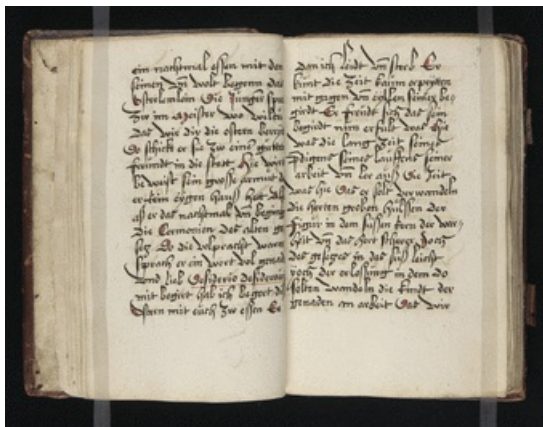 ein nachtmal essen mit den
seinen Vnd wolt begenn das
Osterlemlein Die Junger spra
Zw im Meister wo wilen
Das wir dir die ostern bereit
So schickt er sie Zw eine guten
freundt in die statt Hie wirt
beweist sein grosse armut d
er kein eygen hauss het Als
aß er das nachtmal Vnd beging
Die Cermonien Des alten ge
setz Do die volpracht warn
sprach er ein wort vol genad
Vnd lieb Desiderio desideraui
mit begirt hab ich begert di
Ostern mit euch Zw essen Ee
Dan ich leidt Vnd sterb Er
kunt die Zeit kaum erpeyten
mit gagen Vnd eyssen seiner be
girdt Er freudt sich das sein
begirdt nun erfult was Hie
was die lang Zeit seines
pdigens seines lauffens seiner
arbeit Vnd ler auss Die Zeit
was hie Das er solt verwandeln
die herten groben hülssen Der
figur in den sussen kern der war
heit Vnd das hert schwer Joch
das gesetzes in das suss leicht
yoch der erlossung in dem Do
solten wandeln die kindt der
genaden on arbeit Das wir